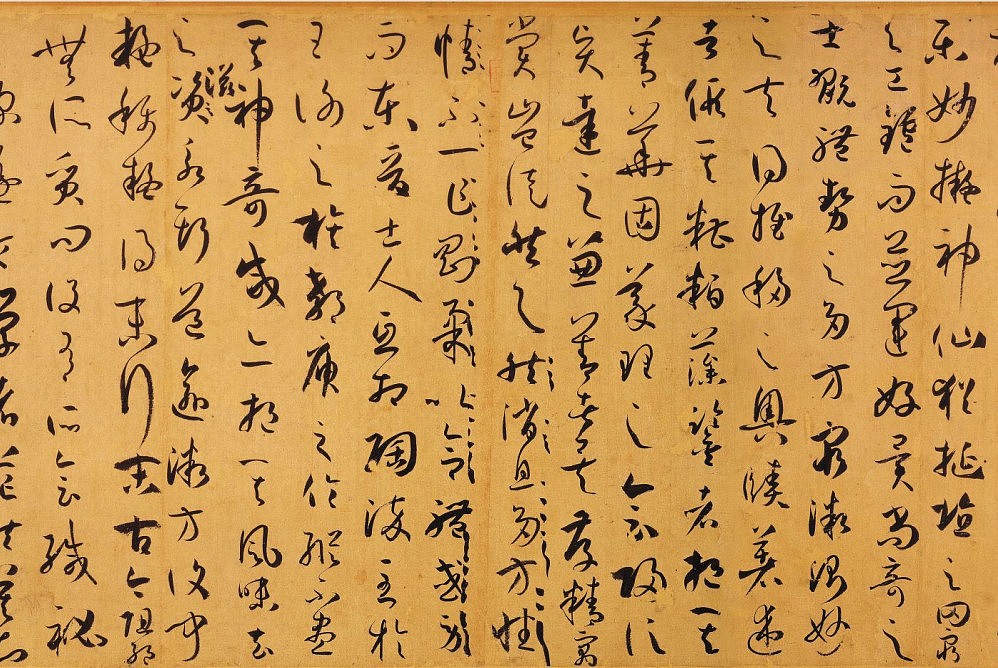 樂妙擬神仙猶挻埴之罔窮
與工鑪而並運好異尚奇之
士翫體勢之多方窮微測妙
之夫得推移之奧賾著述
者假其糟粕藻鑒者挹其
菁華固義理之會歸信
賢達之兼善者矣存精寓
賞豈徒然與然消息多方性
情不一乍剛柔以合體忽勞
而東晉士人互相陶淬至於
王謝之族郗庾之倫縱不盡
其神奇咸亦挹其風味去
之滋永斯道逾微方復聞
疑稱疑得末行末古今阻絕
無所質問設有所會緘秘
已深遂令學者茫然莫知